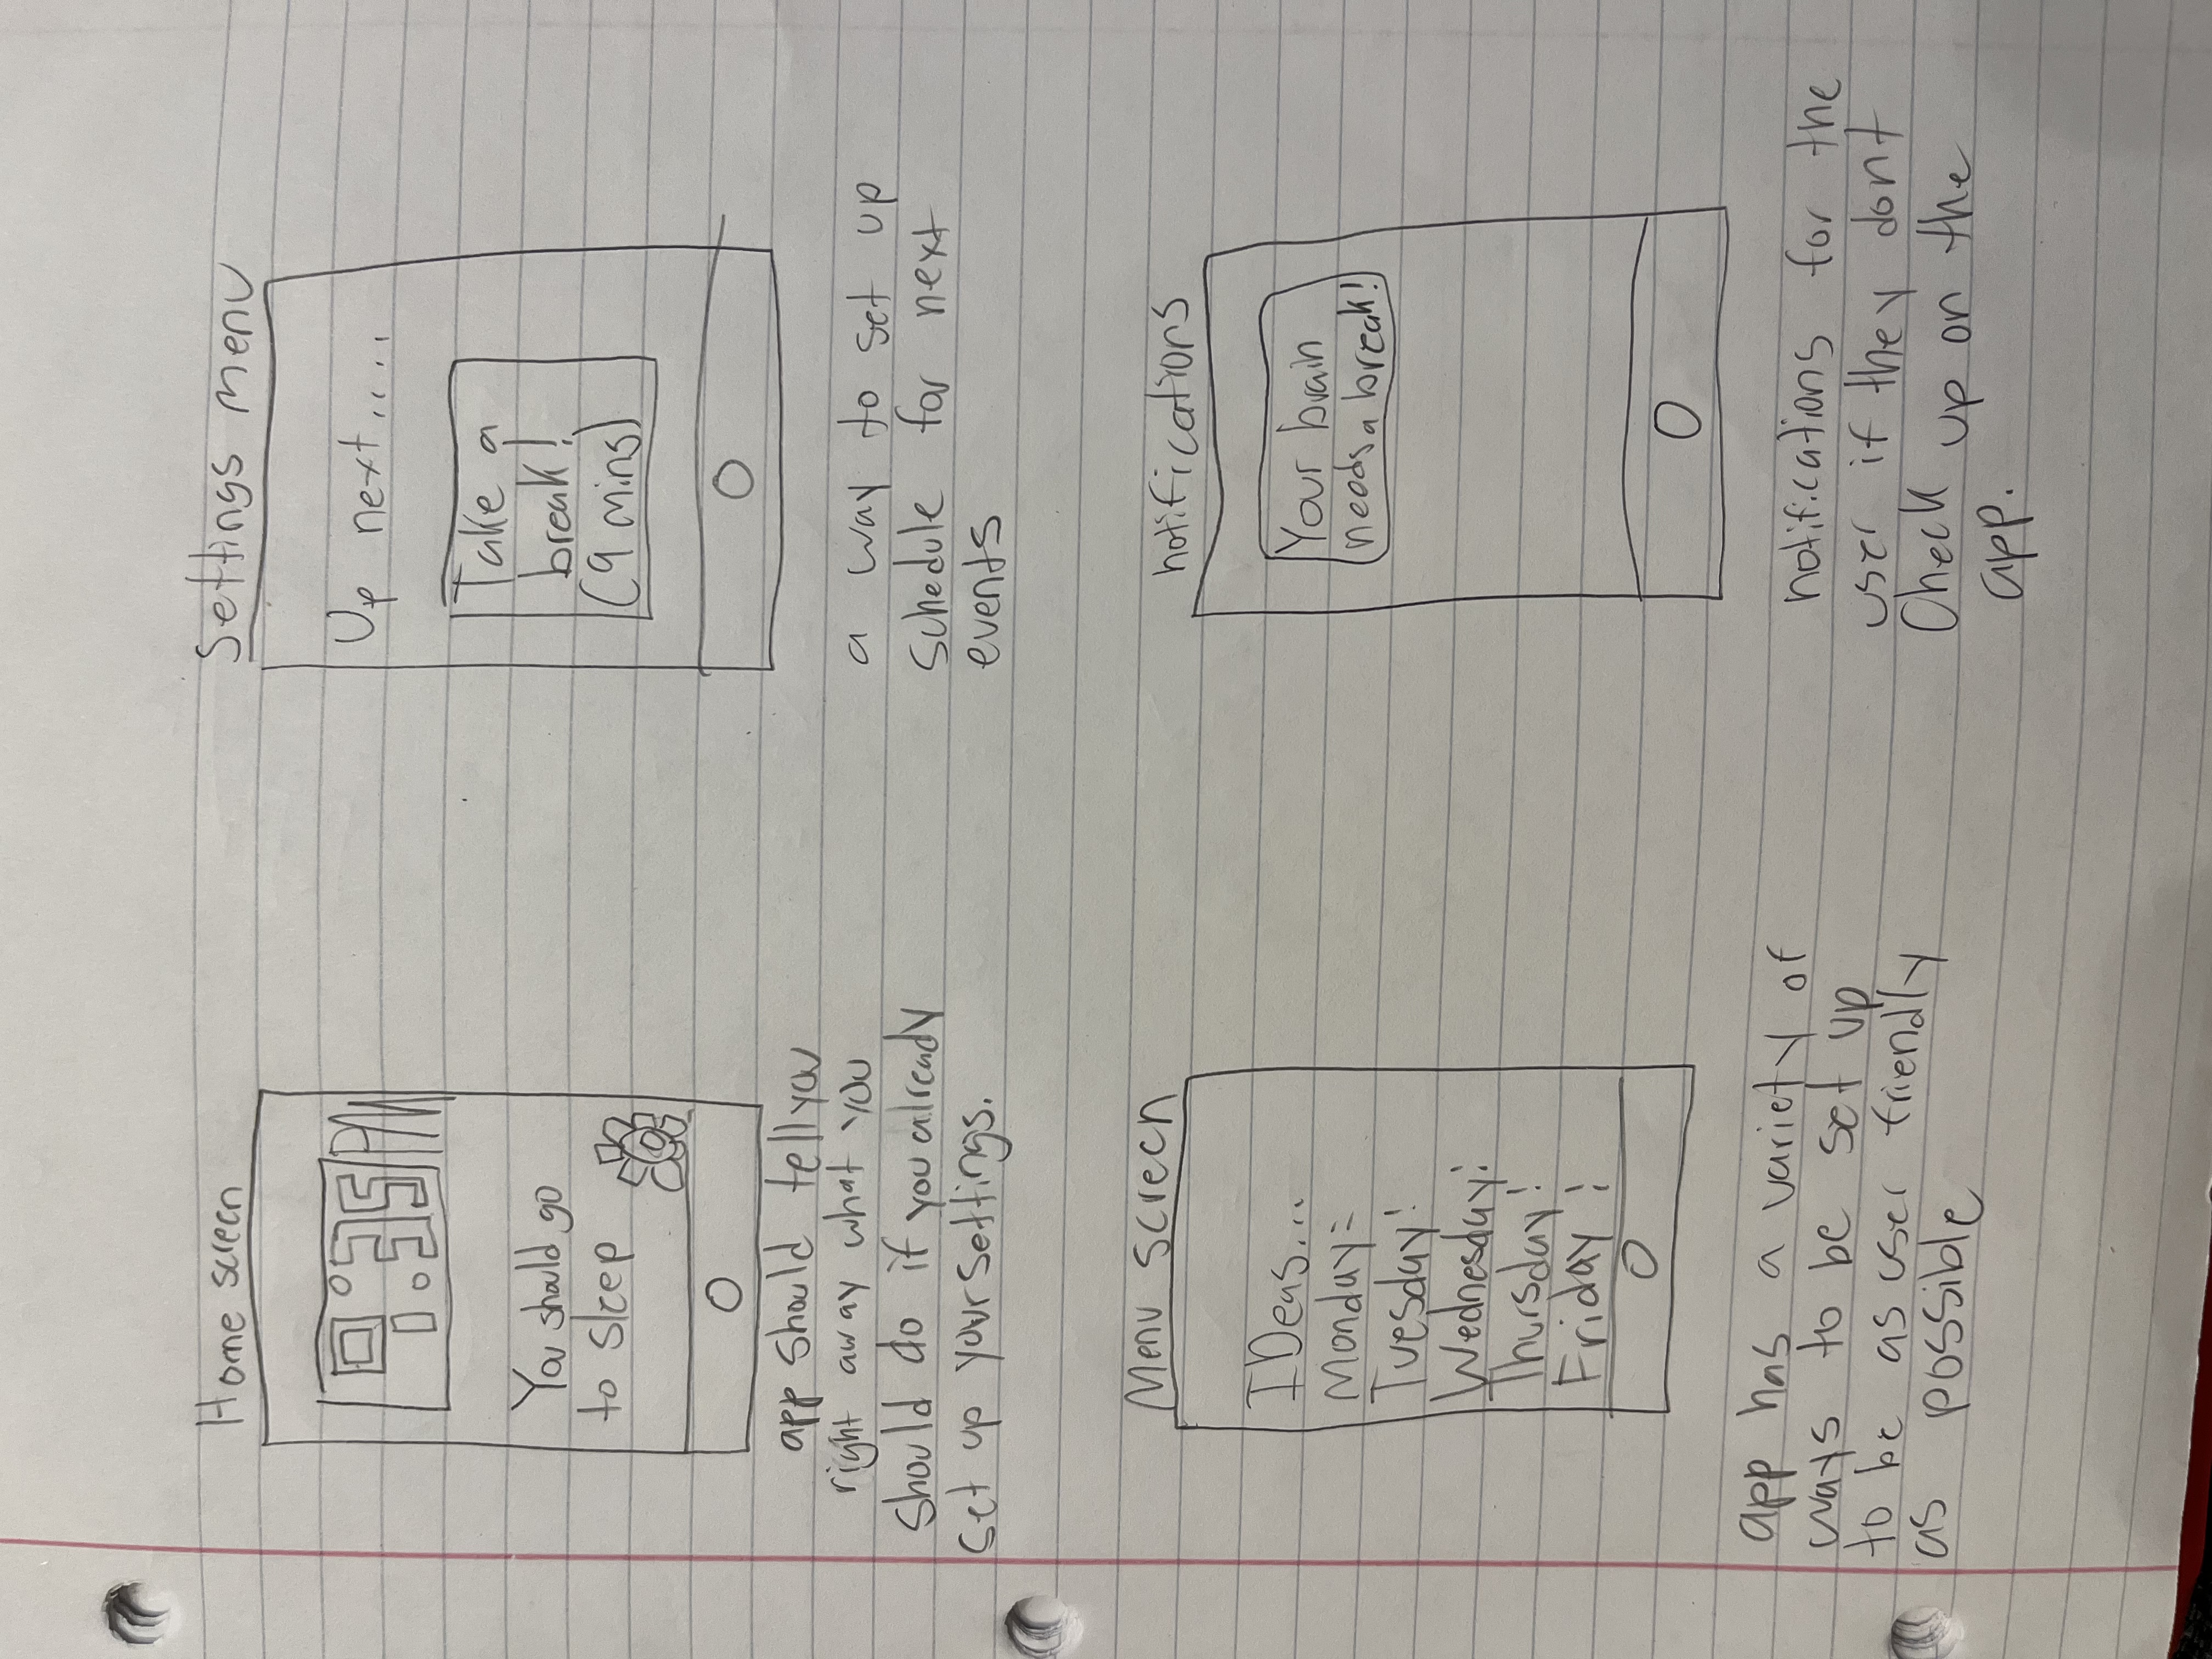 Home screen
9:35 PM
You should go
to sleep
app should tell you
right away what you
should do if you already
set up your settings.
Settings menu
Up next.....
Take a
break!
(9 mins)
a way to set up
schedule for next
events
Menu screen
IDeas...
Monday:
Tuesday:
Wednesday:
Thursday:
Friday:
app has a variety of
ways to be set up
to be as user friendly
as possible
notifications
Your brain
needs a break!
notifications for the
user if they dont
Check up on the
app.